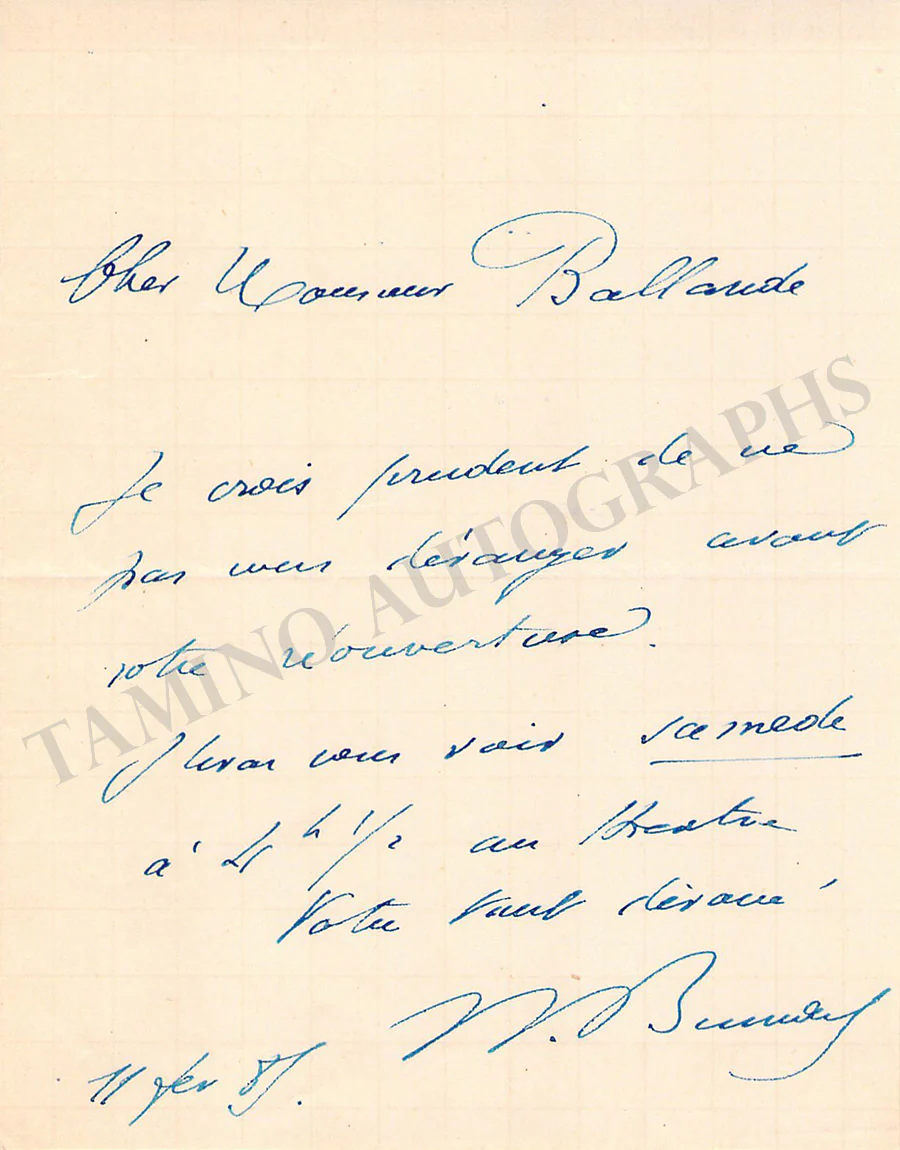 Cher Monsieur Ballande
Je crois prudent de ne
pas vous déranger avant
votre réouverture.
J'irai vous voir samede
à 4 h 1/2 au théatre
Votre tout dévoué
11 fév 85.
TAMINO AUTOGRAPHS